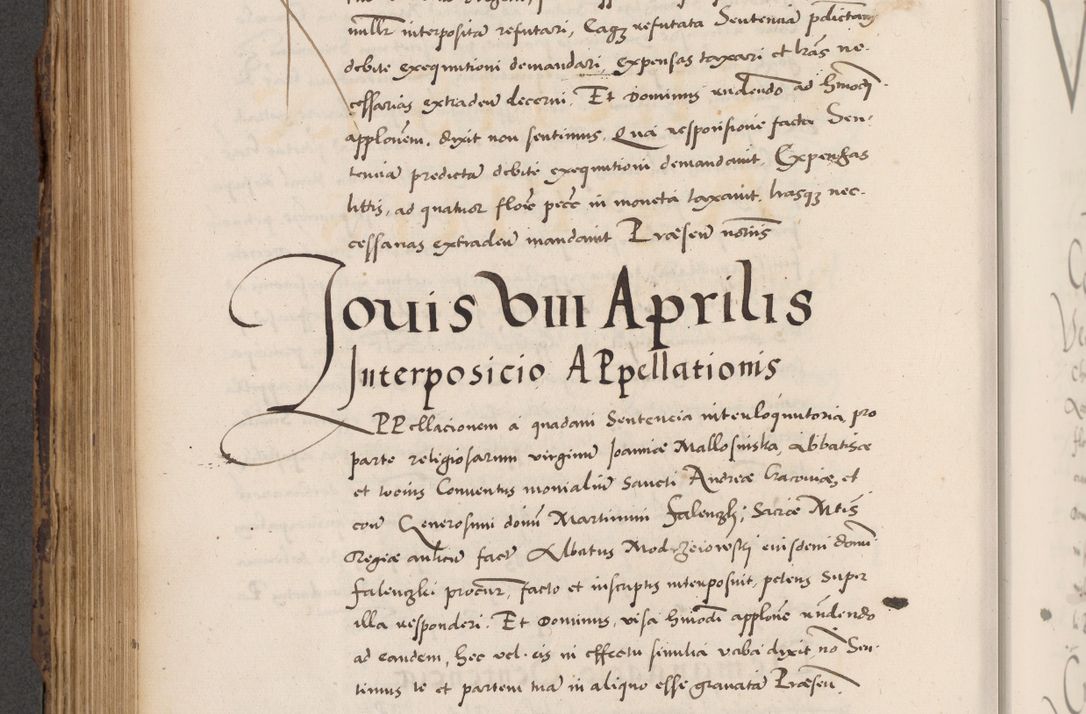 nullr interposita refutari, Eaqz refutata Sentencia pdictam
debite exequutioni demandari, expensas taxari et lras ne-
cessarias extraden decerni. Et Dominus rndendo ad hmodi
applonem, dixit non sentimus, Qua responsione facta Sen-
tencia predicta debite exequutioni demandavit. Expensas
littis, ad quatuor flore pece in moneta taxavit, lrasqz nec-
cessarias extraden mandavit Præsen notriis
Jouis VIII Aprilis
Interposicio APpellationis
PPellacionem a quadam Sentencia interloquutoria, pro
parte religiosarum virginu Joannæ Malloſinska, Abbatissæ
et tocius Conventus monialiu Sancti Andreæ Cracoviæ, et
con Generosum domu Martinum Falenczki, Sacræ Mtis
Regiæ aulicu fact Albatus Modrzeiowski eiusdem domi
Falenczki procur, facto et inscriptis interposuit, petens super
illa responderi. Et Dominus, visa hmodi applone rndendo
ad eandem, hec vel eis in effectu similia vaba dixit, no Sen-
timus te et partem tua in aliquo esse gravata Præsen